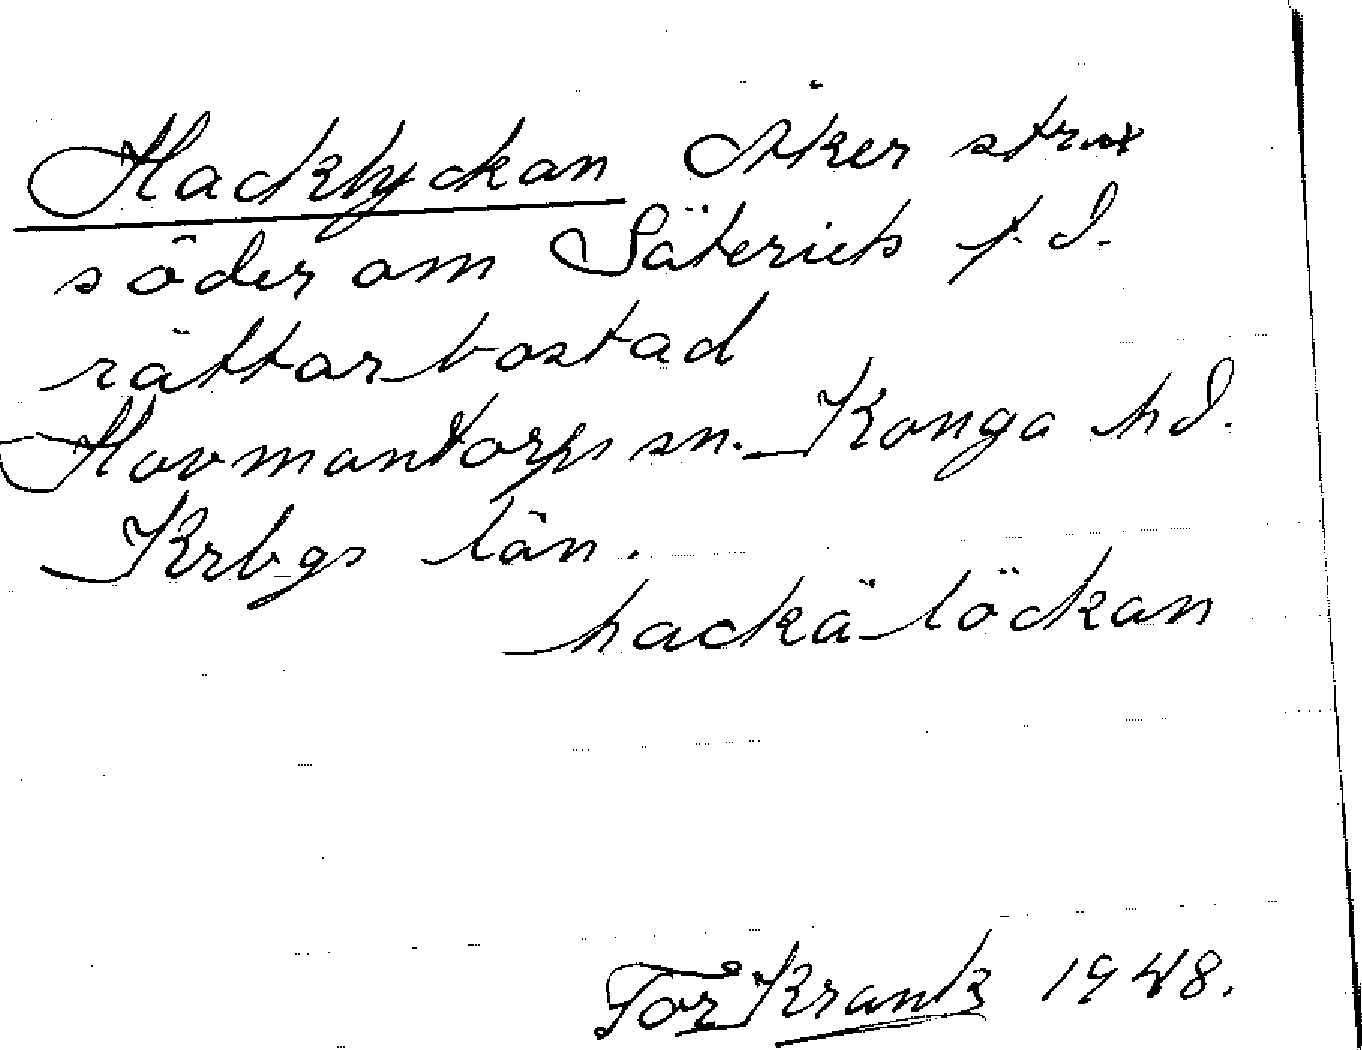 Hacklyckan Åker strax
söder om Säteriets f.d.
rättarbostad
Hovmantorps sn. Konga hd.
Krbgs län.
hackä-löckan
Tor Krantz 1948.